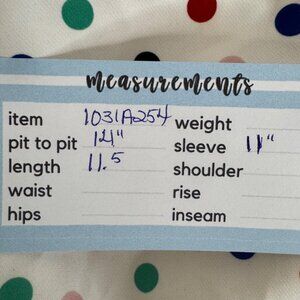 measurements
item 1031A254 weight
pit to pit 14" sleeve 11"
length 11.5 shoulder
waist rise
hips inseam